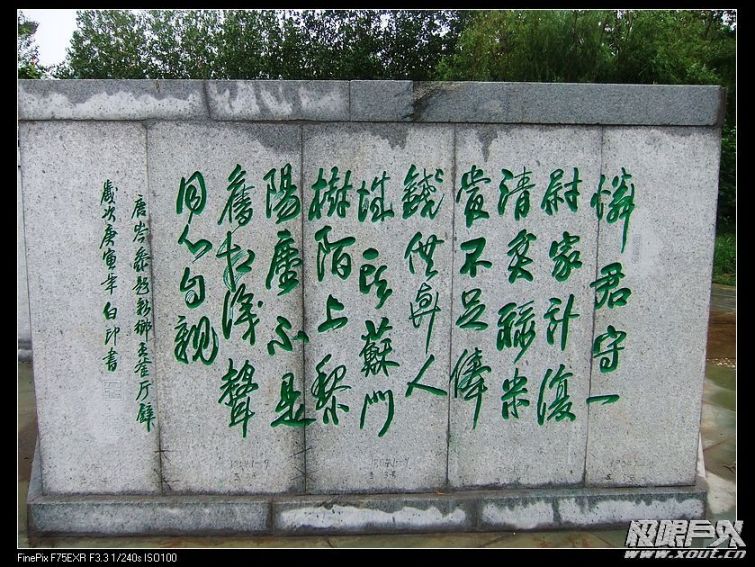 憐君守一
尉家計復
清貧祿米
嘗不足俸
錢供與人
城頭蘇門
樹陌上黎
陽塵不是
舊相識聲
同心自親
唐岑參題新鄉王釜厅壁
歲次庚寅年白印書
极限户外
www.xout.cn
FinePix F75EXR F3.3 1/240s ISO100